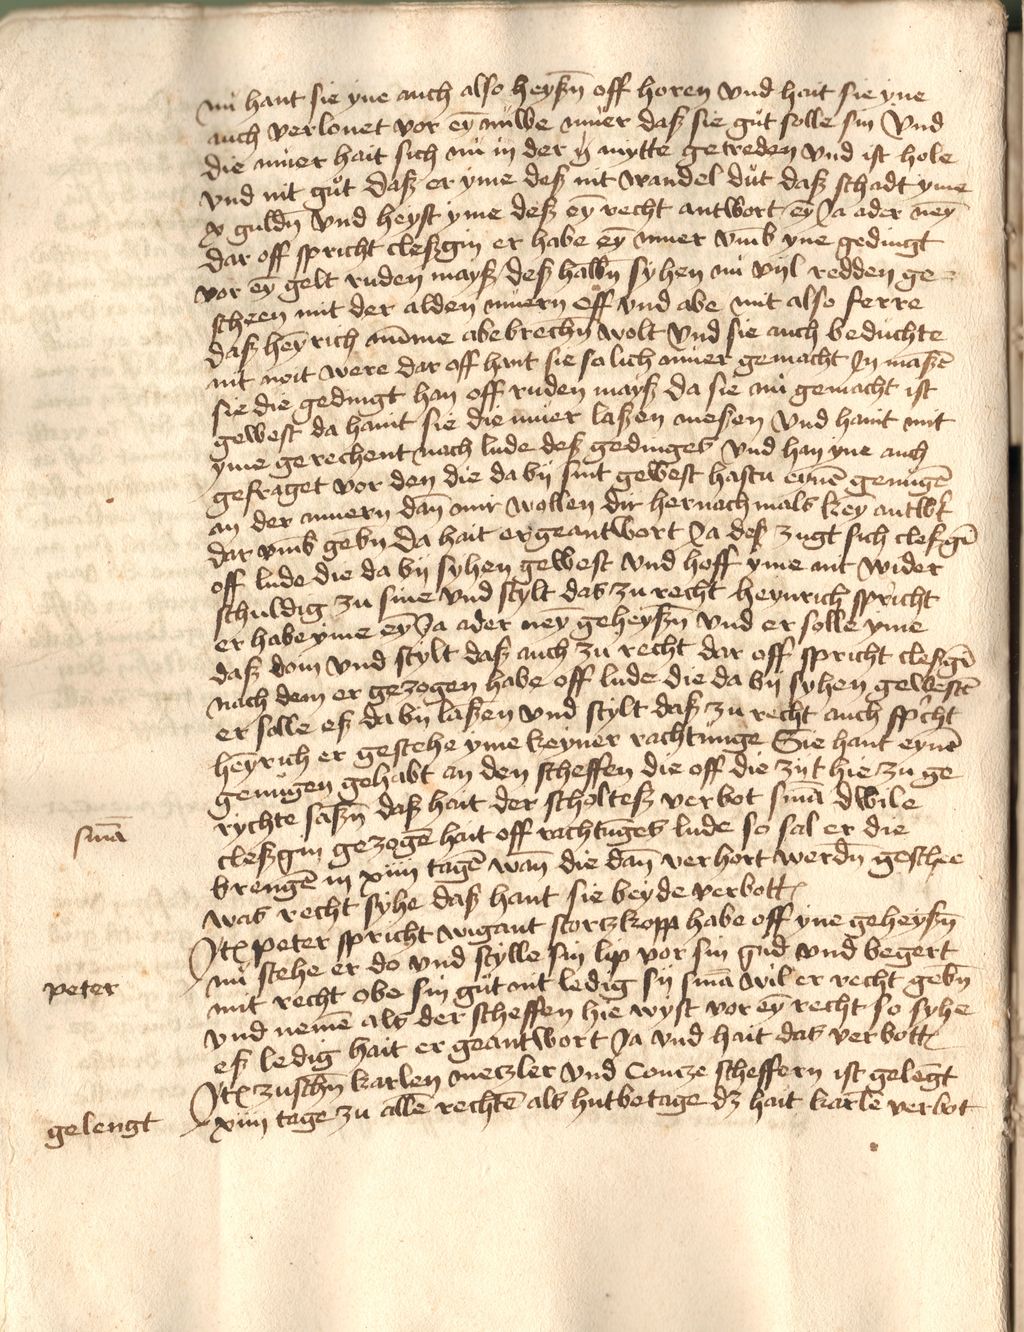 nü hant sie yne auch also heyßn̄ off horen vnd hait sie yne
auch verlonet vor eȳ nüwe müer daß sie güt solle sin Vnd
die müer hait sich nü in der mytte getreden vnd ist hole
vnd nit gůt daß er yme deß nit wandel důt daß schadt yme
x guldn̄ Vnd heyst yme deß eȳ recht antwort eȳ Ja ader neȳ
dar off spricht cleßgin er habe eȳ muer vmb yne gedingt
vor eȳ gelt ruden mayß deß halbn̄ syhen nü vijl redden ge-
scheen mit der alden müern off vnd abe mit also ferre
daß heȳrich müme abebrechn̄ wolt Vnd sie auch beduchte
nit noit were dar off hant sie solich muer gemacht In maßē
sie die gedingt han off ruden mayß da sie nü gemacht ist
gewest da haint sie die müer laßen meßen Vnd haint mit
yme gerechent nach lude deß gedinges Vnd han yne auch
gefraget vor den die da bij sint gewest hastu eynē genugē
an der muern dan̄ mir wollen dir hernach mals key antwt
dar vmb gebn̄ da hait er geantwort Ja deß zugt sich cleßgī
off lude die da bij syhen gewest Vnd hoff yme nit wider
schuldig zu sine Vnd stylt das zu recht heynrich spricht
er habe yme eȳ Ja ader neȳ geheyßn̄ Vnd er solle yme
daß doin Vnd stylt daß auch zu recht dar off spricht cleßgī
nach dem er gezogen habe off lude die da bij syhen gewest
er solle eß da bij laßen Vnd stylt daß zu recht auch sp'cht
heȳrich er gestehe yme keyner rachtunge Sie hant eynē
genügen gehabt an den scheffen die off die zijt hie zu ge
rychte saßn̄ daß hait der scholteß verbot sm̄a dwile
sm̄a
cleßgin gezogē hait off rachtūges lude so sal er die
brengē in xiiij tagē wan̄ die dan̄ verhort werdn̄ geschee
was recht syhe daß hant sie beyde verbott
Jtē peter spricht wigant storczkopp habe off yne geheyßn̄
nü stehe er do vnd stylle sin lip vor sin gud vnd begert
peter
mit recht obe sin gůt nit ledig sij sm̄a wil er recht gebn̄
vnd nemē als der scheffen hie wyst vor eȳ recht so syhe
eß ledig hait er geantwort Ja vnd hait das verbott
Jtē zuschn̄ karlen meczler vnd Concze scheffern ist gelegt
gelengt
xiiij tage zu allē rechtē als hutbetage dz hait karlē verbot